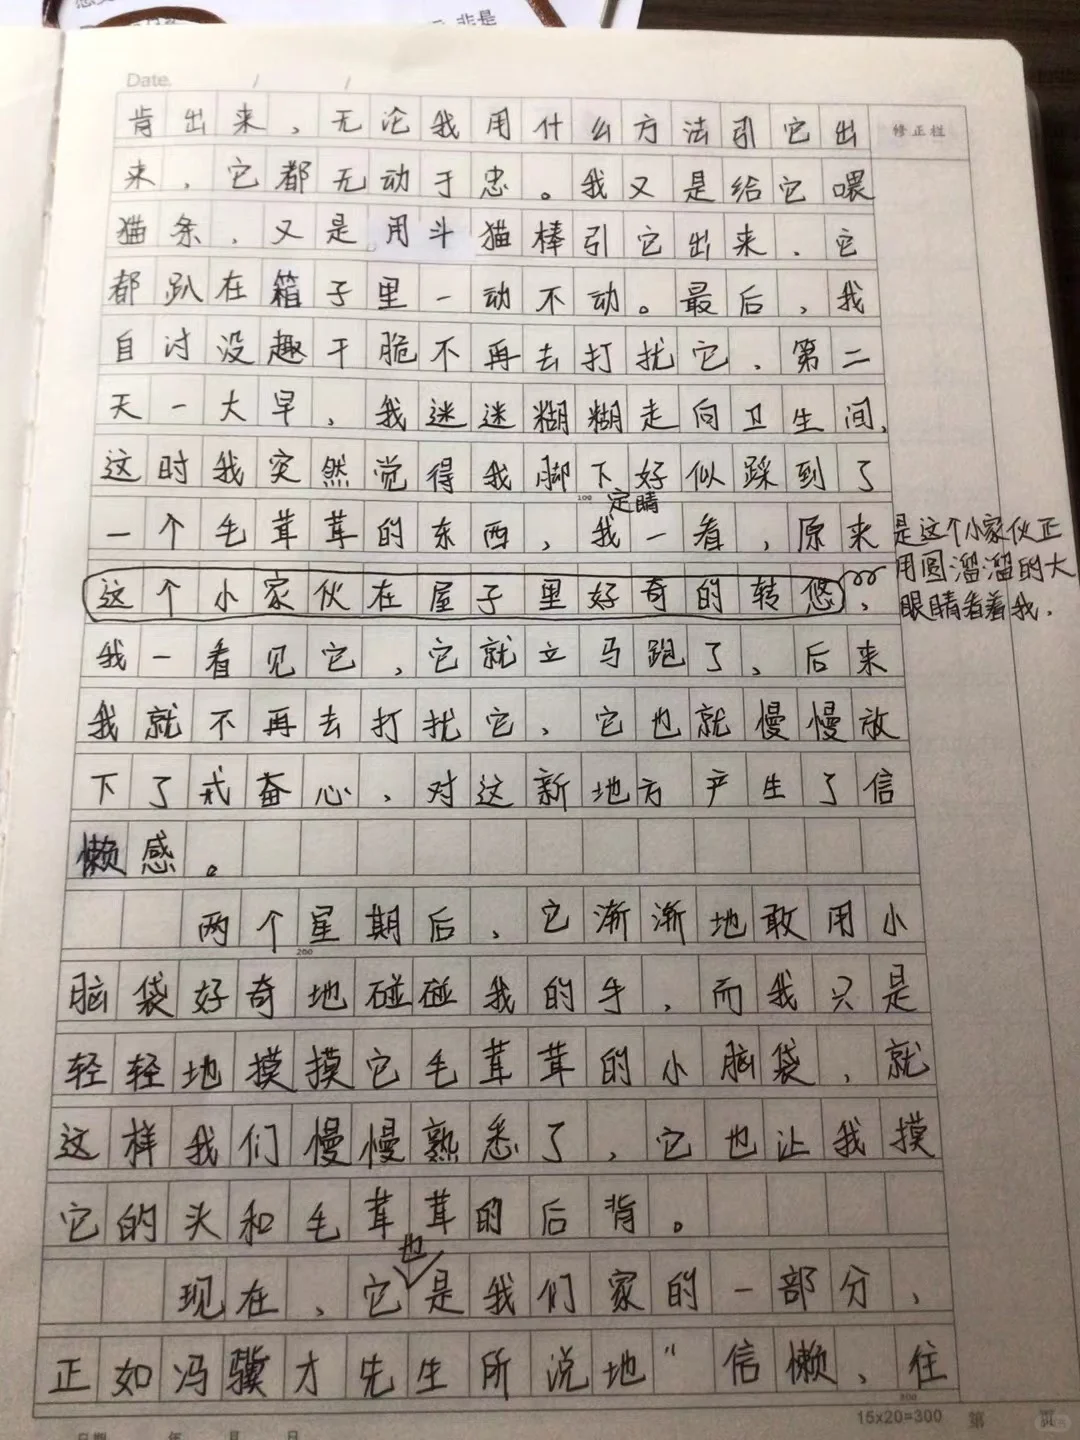 Date. / /
修正栏
肯出来，无论我用什么方法引它出
来，它都无动于忠。我又是给它喂
猫条，又是用斗猫棒引它出来，它
都趴在箱子里一动不动。最后，我
自讨没趣干脆不再去打扰它，第二
天一大早，我迷迷糊糊走向卫生间，
这时我突然觉得我脚下好似踩到了
100
定睛
一个毛茸茸的东西，我一看，原来
是这个小家伙正
用圆溜溜的大
眼睛看着我，
这个小家伙在屋子里好奇的转悠，
我一看见它，它就立马跑了，后来
我就不再去打扰它，它也就慢慢放
下了戒奋心，对这新地方产生了信
懒感。
两个星期后，它渐渐地敢用小
200
脑袋好奇地碰碰我的手，而我只是
轻轻地摸摸它毛茸茸的小脑袋，就
这样我们慢慢熟悉了，它也让我摸
它的头和毛茸茸的后背。
也
现在，它是我们家的一部分，
正如冯骥才先生所说地“信懒，往
300
15x20=300 第 页